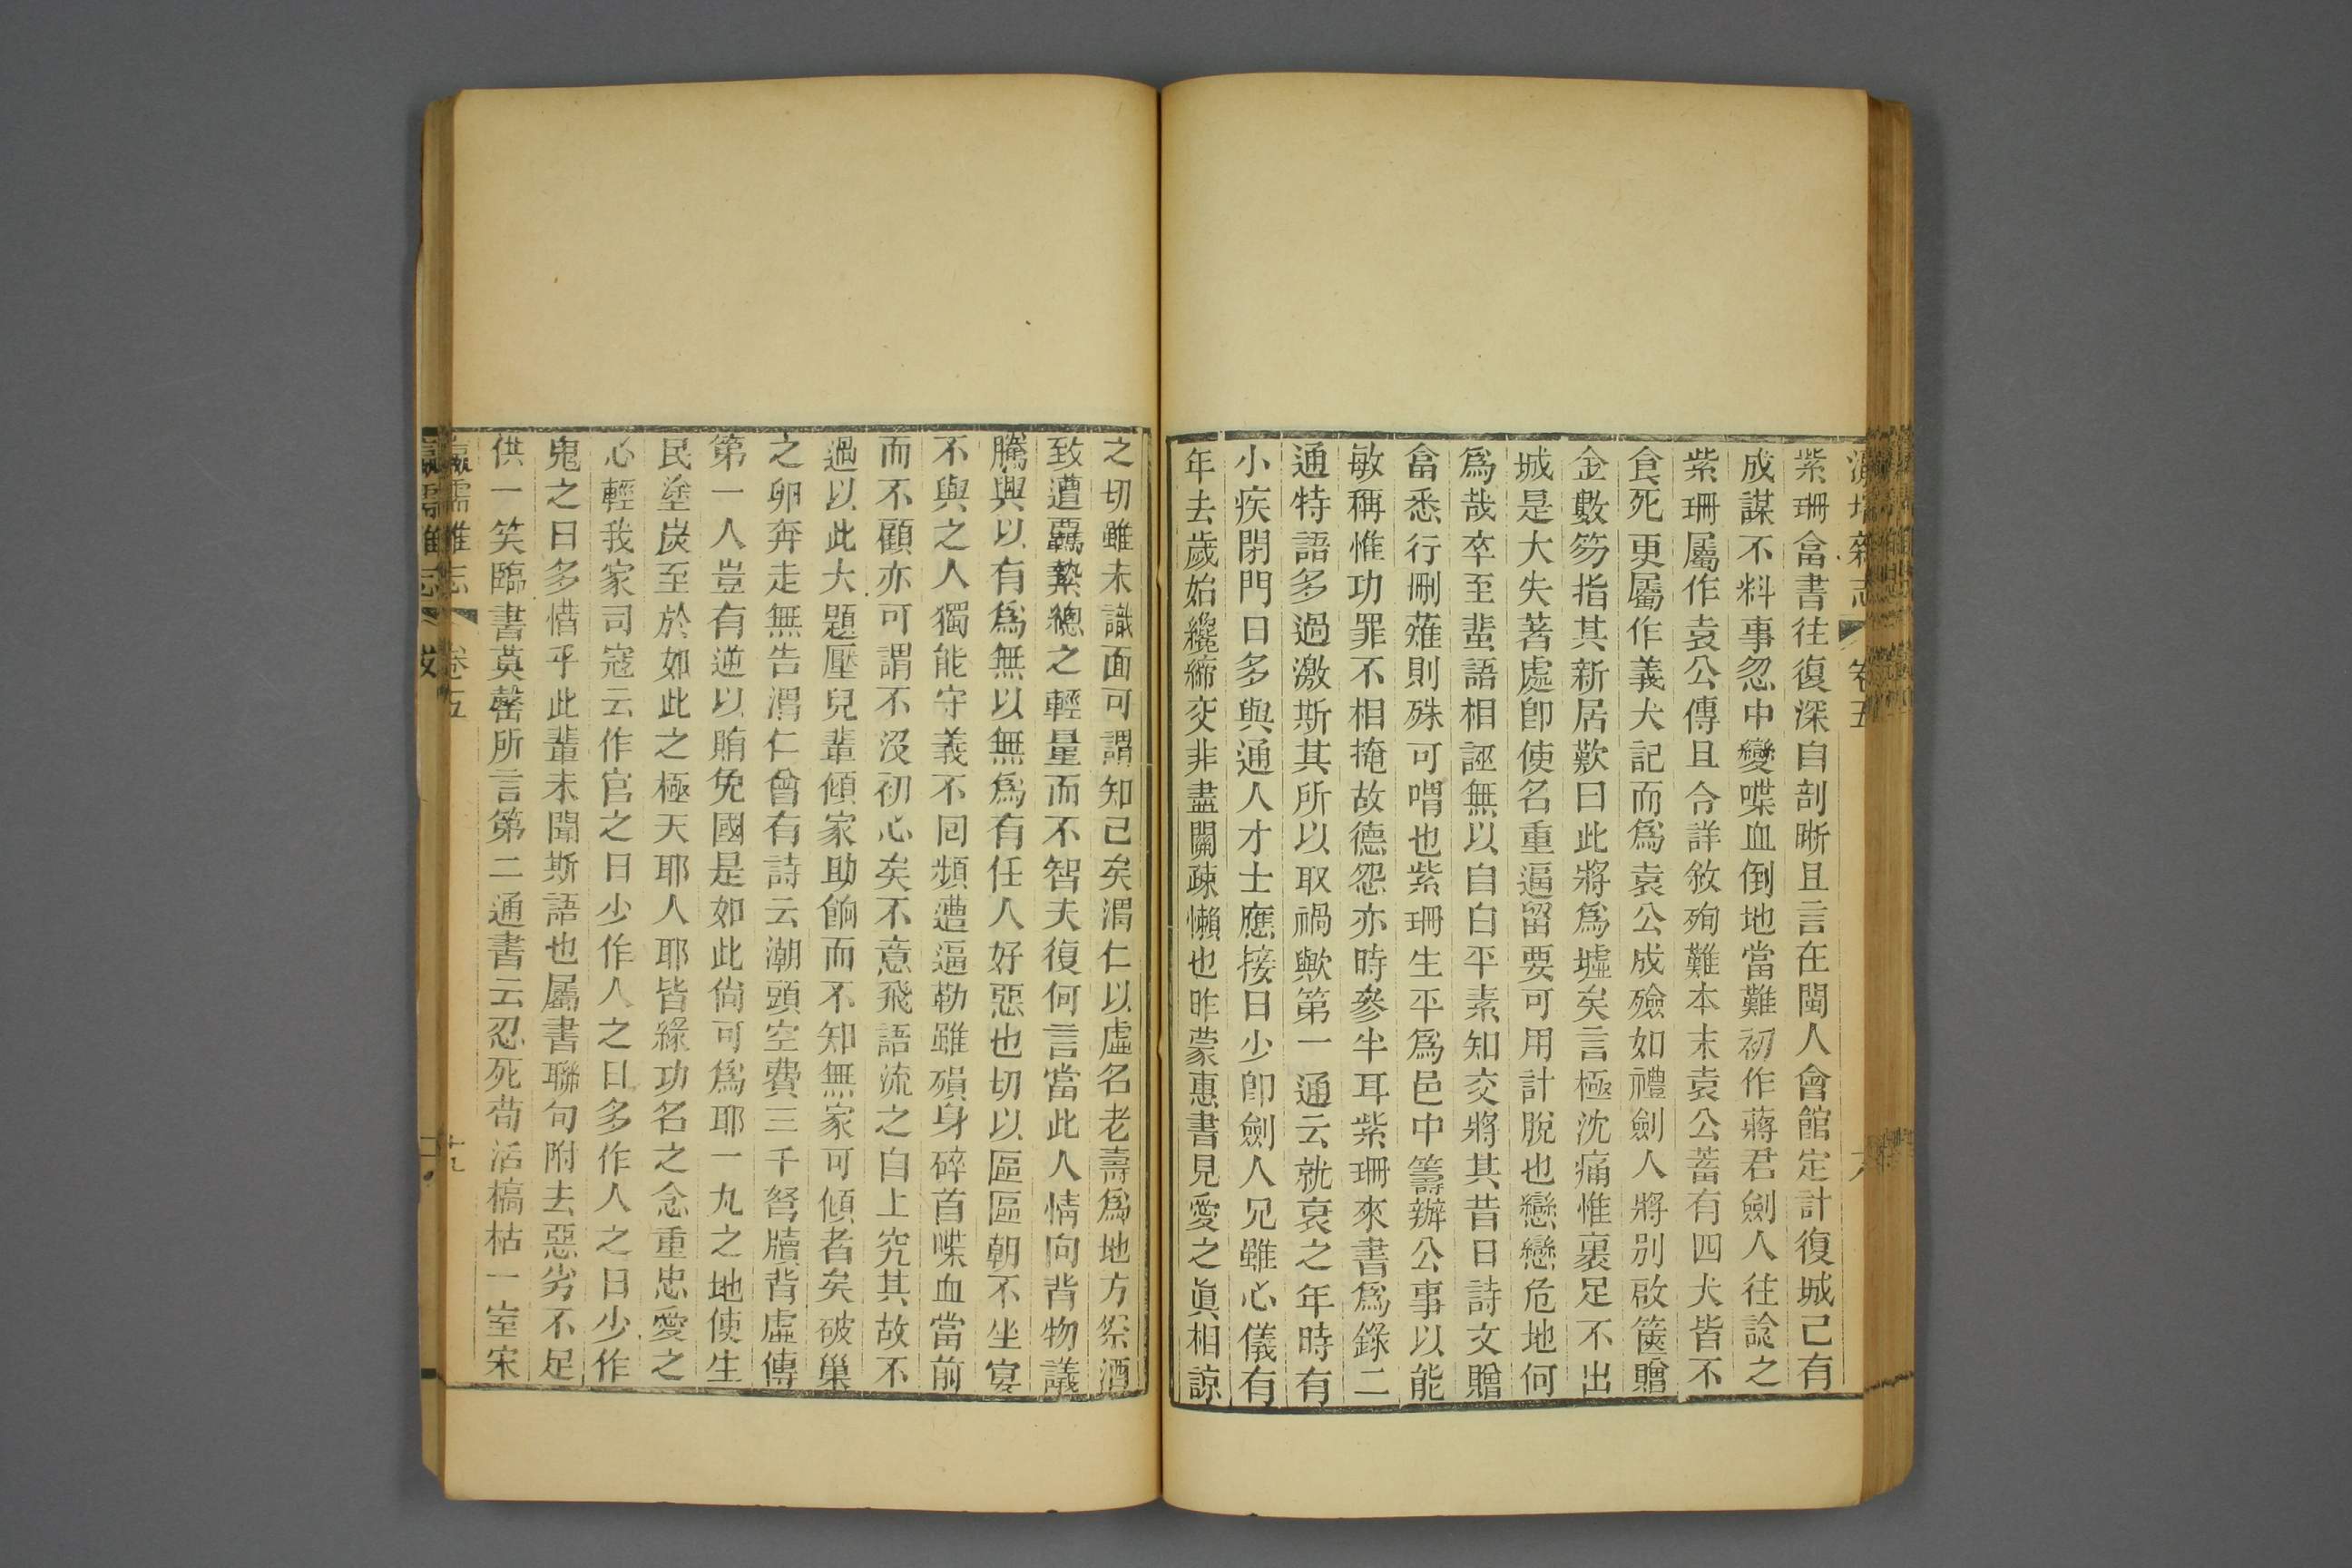 紫珊畣書往復深自剖晣且言在閩人會館定計復城已有
成謀不料事忽中變喋血倒地當難初作蔣君劍人往諗之
紫珊屬作袁公傳且令詳敘殉難本末袁公蓄有四犬皆不
食死更屬作義犬記而爲袁公成殮如禮劍人將別啟篋贈
金數笏指其新居歎曰此將爲墟矣言極沈痛惟裹足不出
城是大失著處卽使名重逼留要可用計脫也戀戀危地何
爲哉卒至蜚語相誣無以自白平素知交將其昔日詩文贈
畣悉行刪薙則殊可喟也紫珊生平爲邑中籌辦公事以能
敏稱惟功罪不相掩故德怨亦時參半耳紫珊來書爲錄二
通特語多過激斯其所以取禍歟第一通云就衰之年時有
小疾閉門日多與通人才士應接日少卽劍人兄雖心儀有
年去歲始纔締交非盡闌疎懶也昨蒙惠書見愛之眞相諒
之切雖未識面可謂知己矣渭仁以虛名老壽爲地方祭酒
致遭羁縶總之輕量而不智夫復何言當此人情向背物議
騰興以有爲無以無爲有任人好惡也切以區區朝不坐宴
不與之人獨能守義不囘頻遭逼勒雖殞身碎首喋血當前
而不顧亦可謂不沒初心矣不意飛語流之自上究其故不
過以此大題壓兒輩傾家助餉而不知無家可傾者矣破巢
之卵奔走無告渭仁曾有詩云潮頭空費三千弩牘背虛傳
第一人豈有逆以賄免國是如此尙可爲耶一九之地使生
民塗炭至於如此之極天耶人耶皆緣功名之念重忠愛之
心輕我家司寇云作官之日少作人之日多作人之日少作
鬼之日多惜乎此輩未聞斯語也屬書聯句附去惡劣不足
供一笑臨書莫罄所言第二通書云忍死苟活槁枯一室宋
瀛壖雜志
卷五